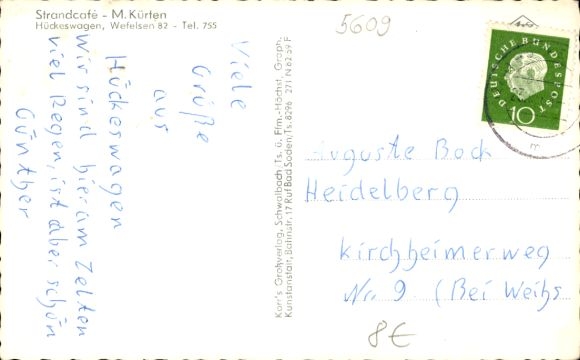 Strandcafé - M. Kürten
Hückeswagen, Wefelsen 82 - Tel. 755
5609
Viele
Grüße
aus
Hückeswagen
Wir sind hier am Zelten
viel Regen, ist aber schön
Günther
Karr's Großverlag, Schwalbach Ts. ü. Ffm.-Höchst, Graph.
Kunstanstalt, Bahnstr. 17 Ruf Bad Soden/Ts. 8296 271 N 62 59 F
DEUTSCHE BUNDESPOST
10
m
Auguste Bock
Heidelberg
Kirchheimerweg
Nr. 9 (Bei Weihs
8€